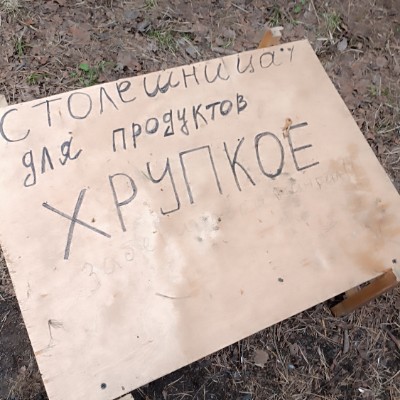 столешница
для продуктов
ХРУПКОЕ